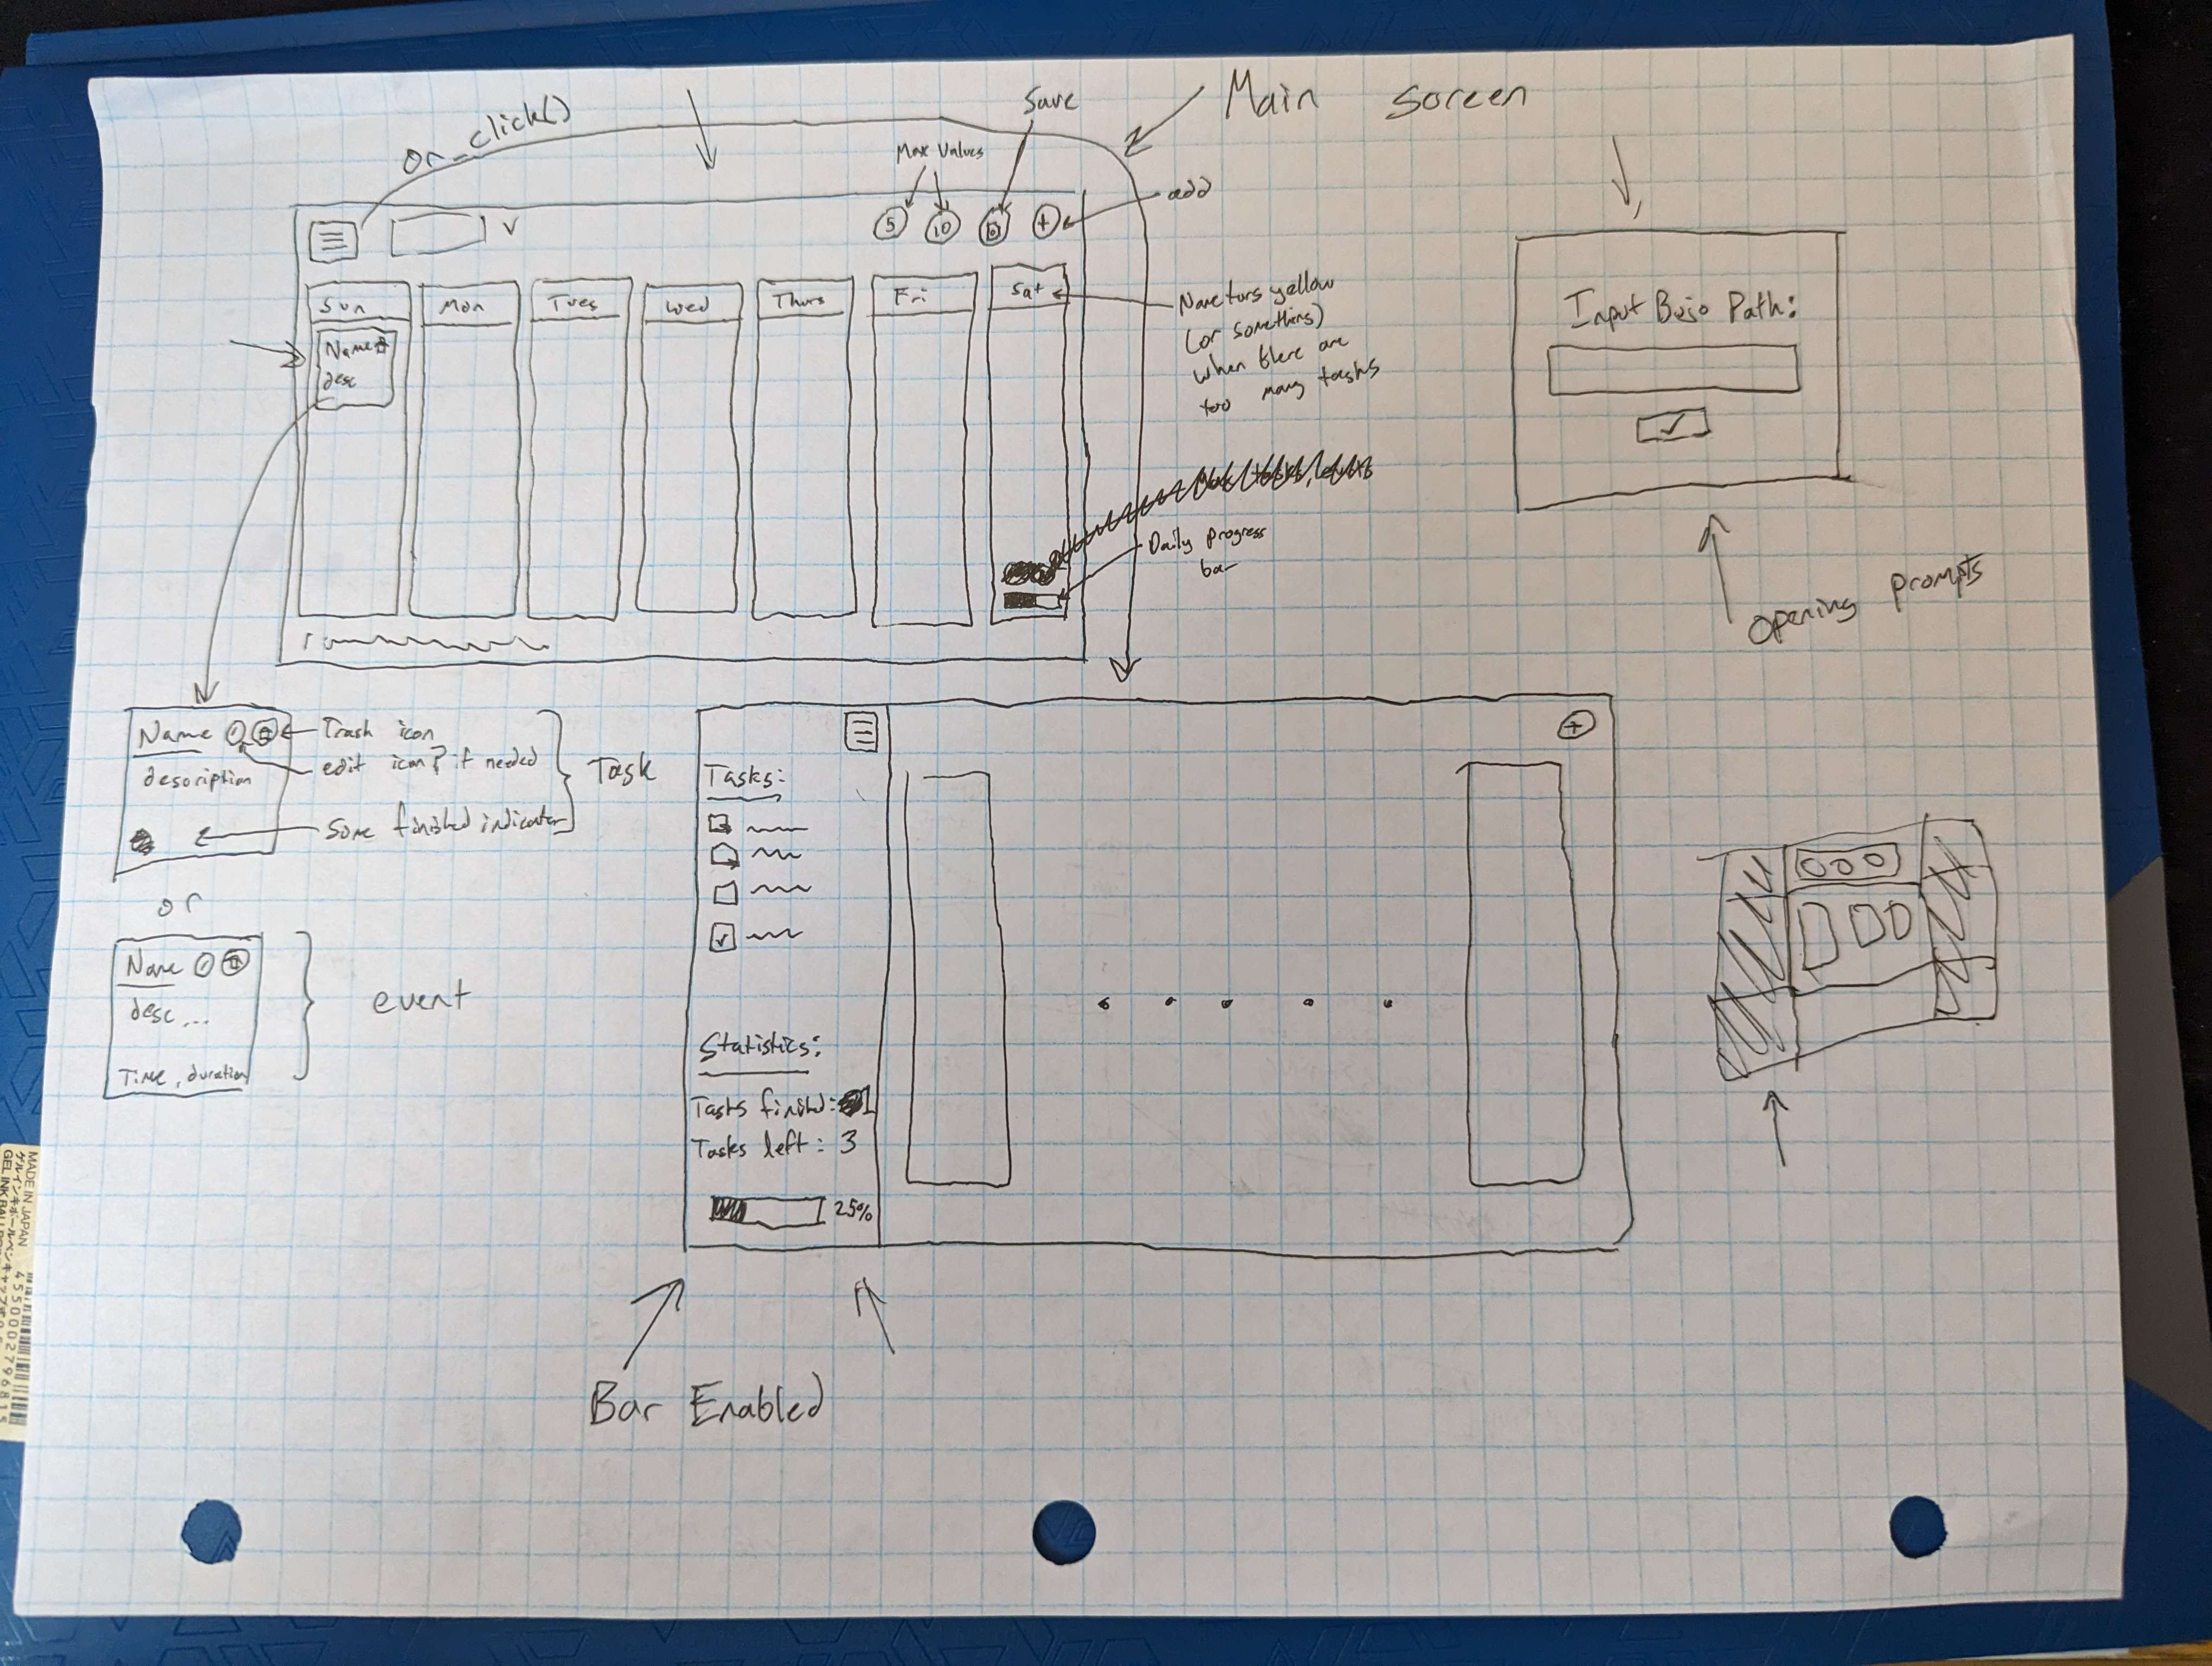 Main Screen
on_click()
Save
Max Values
add
5
10
+
Sun
Mon
Tues
Wed
Thurs
Fri
Sat
Name
desc
Name turs yellow
(or something)
when there are
too many tasks
Daily progress
bar
Input Bujo Path:
✓
Opening prompts
Name
description
Trash icon
edit icon? if needed
Some finished indicator
Task
or
Name
desc...
Time, duration
event
+
Tasks:
✓
Statistics:
Tasks finished: 1
Tasks left: 3
25%
Bar Enabled
MADE IN JAPAN
ゲルインキボールペン
4550002796815